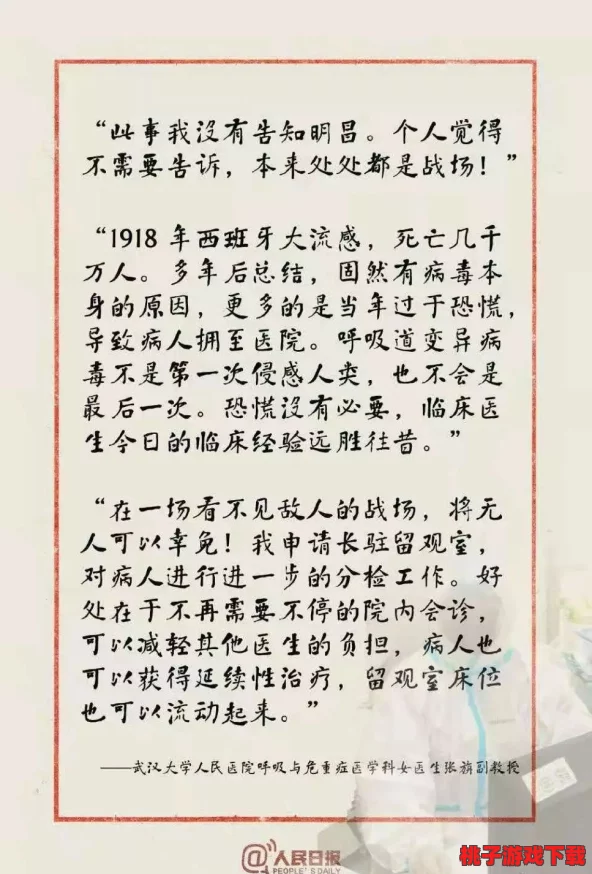 “此事我没有告知明昌。个人觉得
不需要告诉，本来处处都是战场！”
“1918 年西班牙大流感，死亡几千
万人。多年后总结，固然有病毒本
身的原因，更多的是当年过于恐慌，
导致病人拥至医院。呼吸道变异病
毒不是第一次侵感人类，也不会是
最后一次。恐慌没有必要，临床医
生今日的临床经验远胜往昔。”
“在一场看不见敌人的战场，将无
人可以幸免！我申请长驻留观室，
对病人进行进一步的分检工作。好
处在于不再需要不停的院内会诊，
可以减轻其他医生的负担，病人也
可以获得延续性治疗，留观室床位
也可以流动起来。”
——武汉大学人民医院呼吸与危重症医学科女医生张旃副教授
@人民日报
PEOPLE'S DAILY
桃子游戏下载